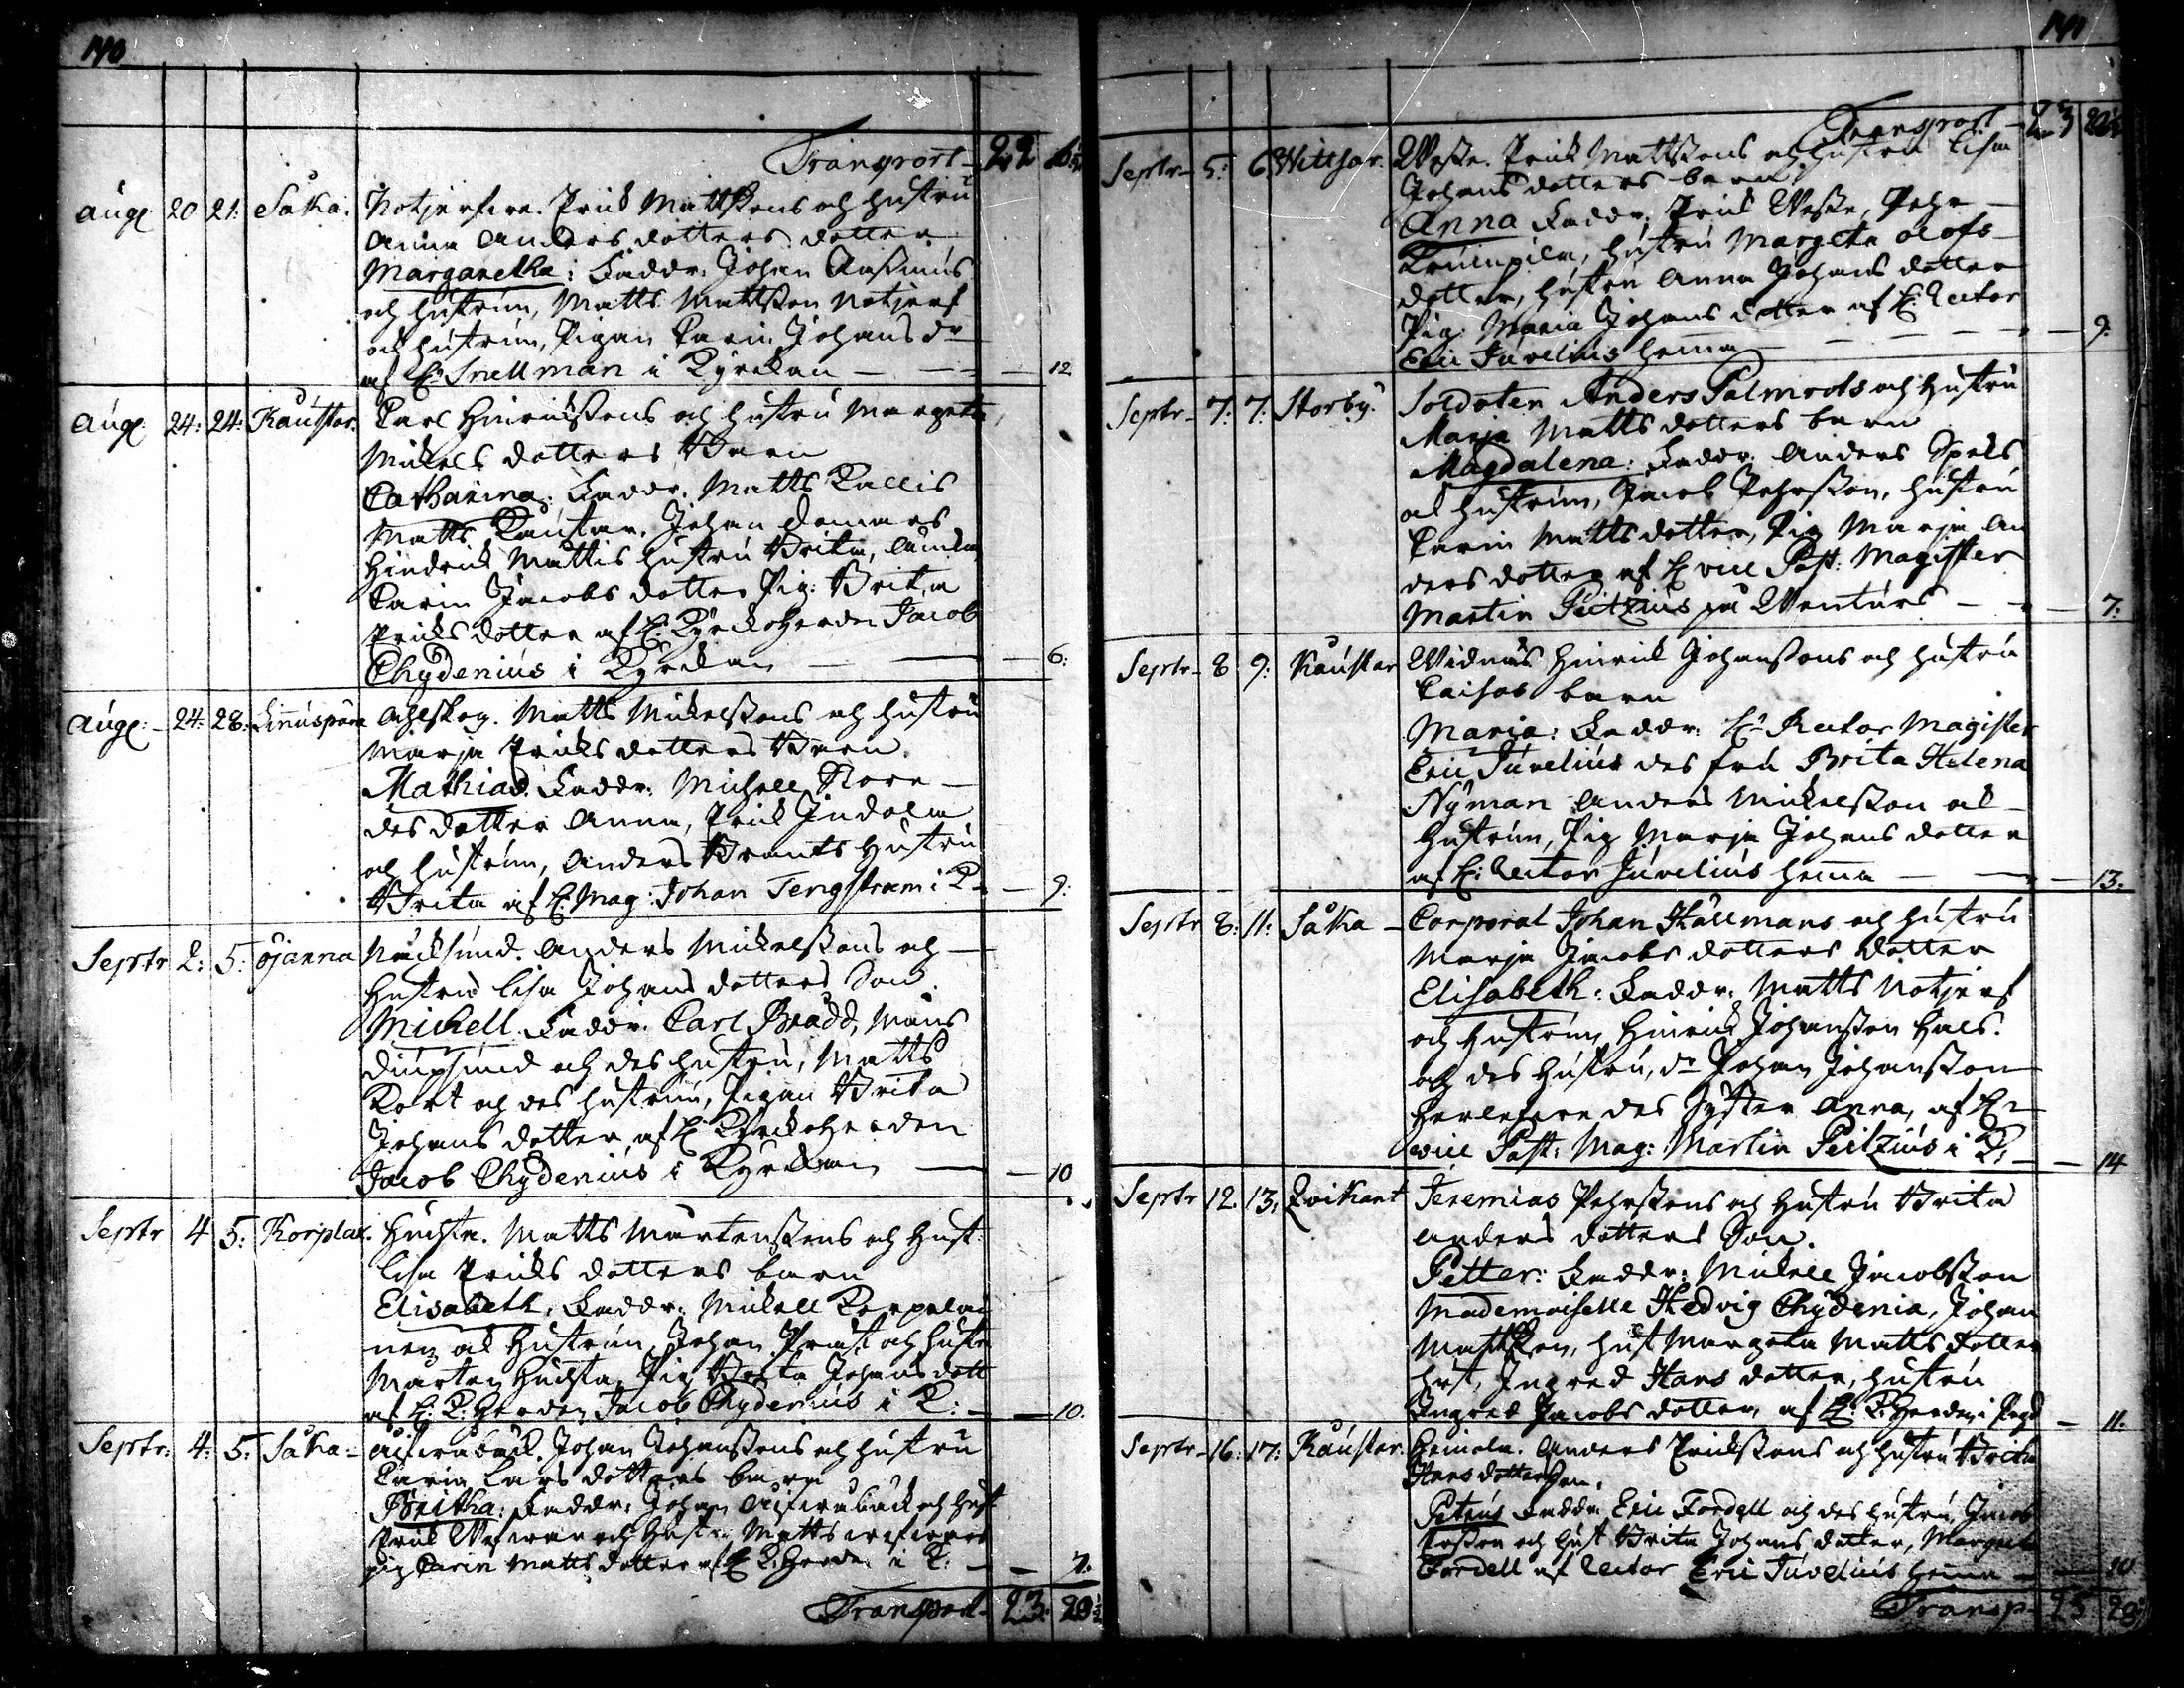 140
Transport 22 6½
Aug: 20 21: Såka. Notjerfwe. Erick Mattssons och hustru
Anna Anders dotters dotter
Margaretha: Faddr: Johan Rasmus
och hustrun, Matts Mattsson Notjerf
och hustrun, Pigan Carin Johans dr
af Hr Snellman i Kyrckan — 12
Aug: 24: 24: Kaustar. Carl Hinrickssons och hustru Margeta
Mickels dotters Barn
Catharina: Faddr. Matts Kallis
Matts Kaustar, Johan
Hindrick Mattis hustru Brita,
Carin Jacobs dotter Pig: Brita
Ericks dotter af H: Kyrckoherden Jacob
Chydenius i Kyrckan — 6:
Aug: 24: 28: Linuspera Achrskog. Matts Mickelssons och hustru
Marja Ericks dotters Barn.
Mathias. Faddr: Michell Flore
des dotter Anna, Erick Indola
och hustrun, Anders Brants hustru
Brita af H. Mag: Johan Tengstram i K — 9:
Septr 2: 5: öjanna Näcksund. Anders Mickelssons och
hustru Lisa Johans dotters Son.
Michell. Faddr. Carl Brådd, Måns
Diupsund och des hustru, Matts
Kort och des hustrun, Pigan Brita
Johans dotter af H Kyrckoherden
Jacob Chydenius i Kyrckan — 10
Septr 4 5: Korplax. Huchta. Matts Mårtenssons och hust:
Lisa Ericks dotters barn
Elisabeth. Faddr: Mickell Korpelai
nen och hustrun, Johan Präst och hustr
Mårten Huchta, Pig Brita Johans dott
af H: K: Herden Jacob Chydenius i K: — 10.
Septr: 4: 5: Såka Johan Johanssons och hustru
Carin Lars dotters barn
Britha: Faddr: Johan och hust
Erick och hustr Matts
pig Carin Matts dotter af H K: Herden i K: — 7.
Transport 23: 20½
141
Transport 23 20½
Septr 5: 6 Wittsar. Wesse. Erick Mattssons och hustru Lisa
Johans dotters barn
Anna Faddr: Erick Wesse, Pehr
hustru Margeta Olofs
dotter, hustru Anna Johans dotter
Pig: Maria Johans dotter af H: Rector
Eric Juvelius hema — 9:
Septr 7: 7: Storby. Soldaten Anders Palmrots och hustru
Marja Matts dotters barn
Magdalena: Faddr: Anders Spels
och hustrun, Jacob Pehrsson, hustru
Carin Matts dotter, Pig Marja An
ders dotter af H vice Past: Magister
Martin Peitzius på Wentus — 7:
Septr 8 9: Kaustar Widnäs Hinrick Johanssons och hustru
Caisas barn
Maria: Faddr: Hr Rector Magister
Eric Juvelius des fru Brita Helena
Nyman Anders Mickelsson och
hustrun, Pig Marja Johans dotter
af H: Rector Juvelius hema — 13.
Septr 8: 11: Såka Corporal Johan Hällmans och hustru
Marja Jacobs dotters dotter
Elisabeth: Faddr: Matts Notjerf
och hustrun, Hinrick Johansson Hals.
och des hustru, dr Johan Johansson
des Syster Anna, af Hr
vice Past: Mag: Martin Peitzius i K: — 14
Septr 12. 13: Jeremias Pehrssons och hustru Brita
Anders dotters Son.
Petter: Faddr: Mickell Jacobsson
Mademoiselle Hedvig Chydenia, Johan
Mattsson, hust Margeta Matts dotter
hust, Ingred Hans dotter, hustru
Ingred Jacobs dotter, af H: K: Herden i — 11:
Septr 16: 17: Kaustar. Heimola. Anders Erickssons och hustru Brita
Hans dotter Son.
Petrus Faddr Eric Fordell och des hustru, Jacob
och hust Brita Johans dotter, Margeta
Fordell af Rector Eric Juvelius hema — 10
Transp: 25 28½